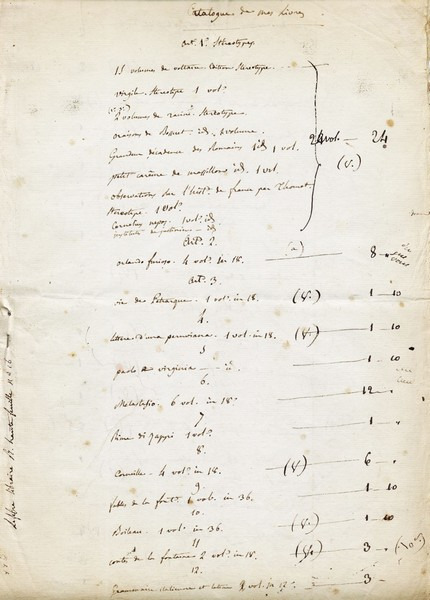 Catalogue de mes Livres
Art. 1er Stéréotypes
15 volumes de voltaire Edition Stéréotype.
virgile. Stéréotype 1 vol.
2 volumes de racine. Stéréotype
oraisons de Bossuet id. 1 volume.
Grandeur décadence des Romains id. 1 vol.
24 vol. 24
petit carême de massillon id. 1 vol.
(V.)
observations sur l'hist. de france par Thouret
stéréotype. 1 vol.
Cornelius nepos. 1 vol. id.
Art. 2.
orlando furioso. 4 vol. in 18. (a) 8
Art. 3.
vie de Petrarque. 1 vol. in 18. (V.) 1 10
4.
lettere d'una peruviana. 1 vol. in 18. (V.) 1 10
5
paolo e virginia id. 1 10
6.
Metastasio. 6 vol. in 18. 12
7
Rime di Zappi 1 vol. 1
8.
Corneille. 4 vol. in 18. (V) 6
9
fables de la font. vol. in 36. 1 10
10.
Boileau. 1 vol. in 36. (V.) 1 10
11
contes de la fontaine 2 vol. in 18. 3
12.
Grammaire italienne et latine vol. in 12. 3